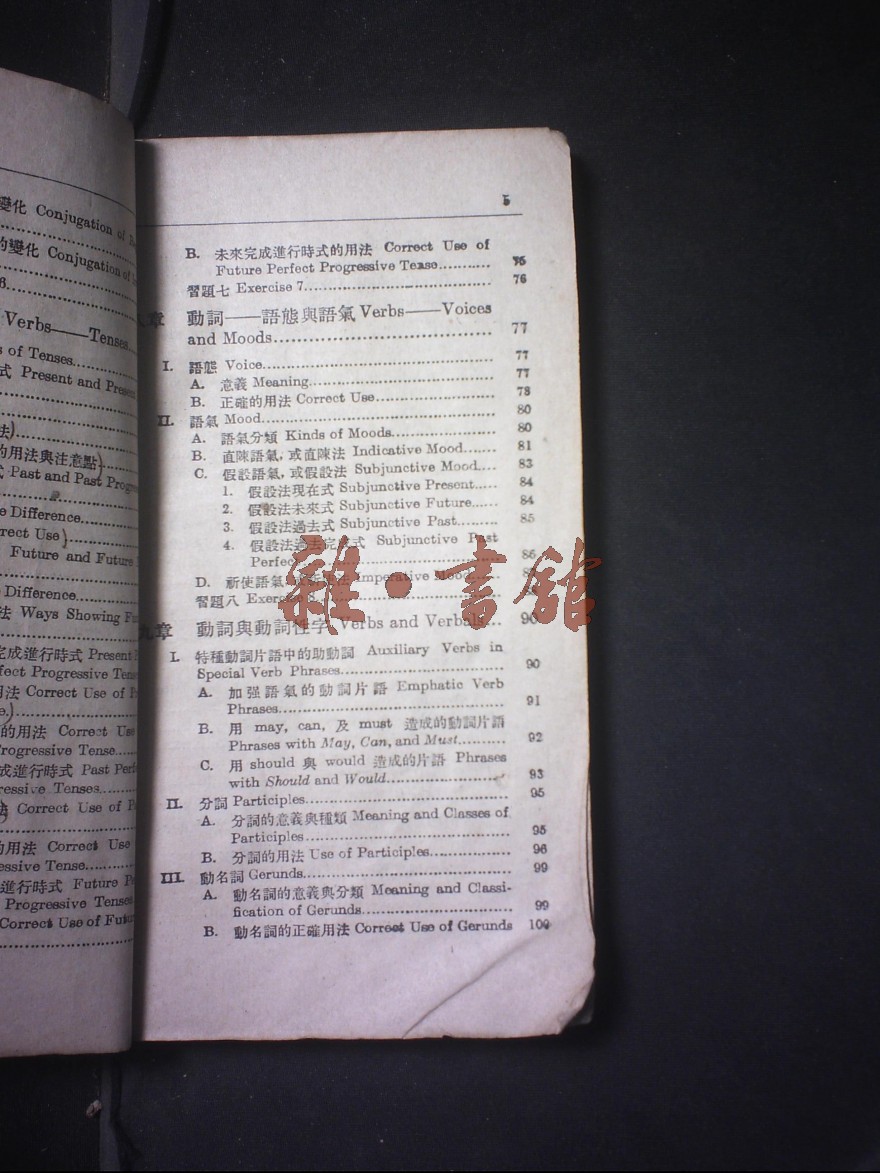 變化 Conjugation of
的變化 Conjugation of
6
Verbs——Tenses
s of Tenses
式 Present and Present
法)
的用法與注意點)
Past and Past Progressive
e Difference
rrect Use)
Future and Future
Difference
法 Ways Showing Fu
完成進行時式 Present P
fect Progressive Tense
用法 Correct Use of P
e.)
的用法 Correct Use
rogressive Tense
成進行時式 Past Perf
ressive Tenses
Correct Use of P
用法 Correct Use
essive Tense
進行時式 Future P
Progressive Tenses
Correct Use of Futu
5
B. 未來完成進行時式的用法 Correct Use of
Future Perfect Progressive Tense 75
習題七 Exercise 7 76
章 動詞——語態與語氣 Verbs——Voices
and Moods 77
I. 語態 Voice 77
A. 意義 Meaning 77
B. 正確的用法 Correct Use 78
II. 語氣 Mood 80
A. 語氣分類 Kinds of Moods 80
B. 直陳語氣,或直陳法 Indicative Mood 81
C. 假設語氣,或假設法 Subjunctive Mood 83
1. 假設法現在式 Subjunctive Present 84
2. 假設法未來式 Subjunctive Future 84
3. 假設法過去式 Subjunctive Past 85
4. 假設法過去完成式 Subjunctive Past
Perfect 86
D. 祈使語氣 Imperative Mood
習題八 Exercise 8
雜·書館
九章 動詞與動詞性字 Verbs and Verbals 90
I. 特種動詞片語中的助動詞 Auxiliary Verbs in
Special Verb Phrases 90
A. 加强語氣的動詞片語 Emphatic Verb
Phrases 91
B. 用 may, can, 及 must 造成的動詞片語
Phrases with May, Can, and Must 92
C. 用 should 與 would 造成的片語 Phrases
with Should and Would 93
II. 分詞 Participles 95
A. 分詞的意義與種類 Meaning and Classes of
Participles 95
B. 分詞的用法 Use of Participles 96
III. 動名詞 Gerunds 99
A. 動名詞的意義與分類 Meaning and Classi-
fication of Gerunds 99
B. 動名詞的正確用法 Correct Use of Gerunds 100